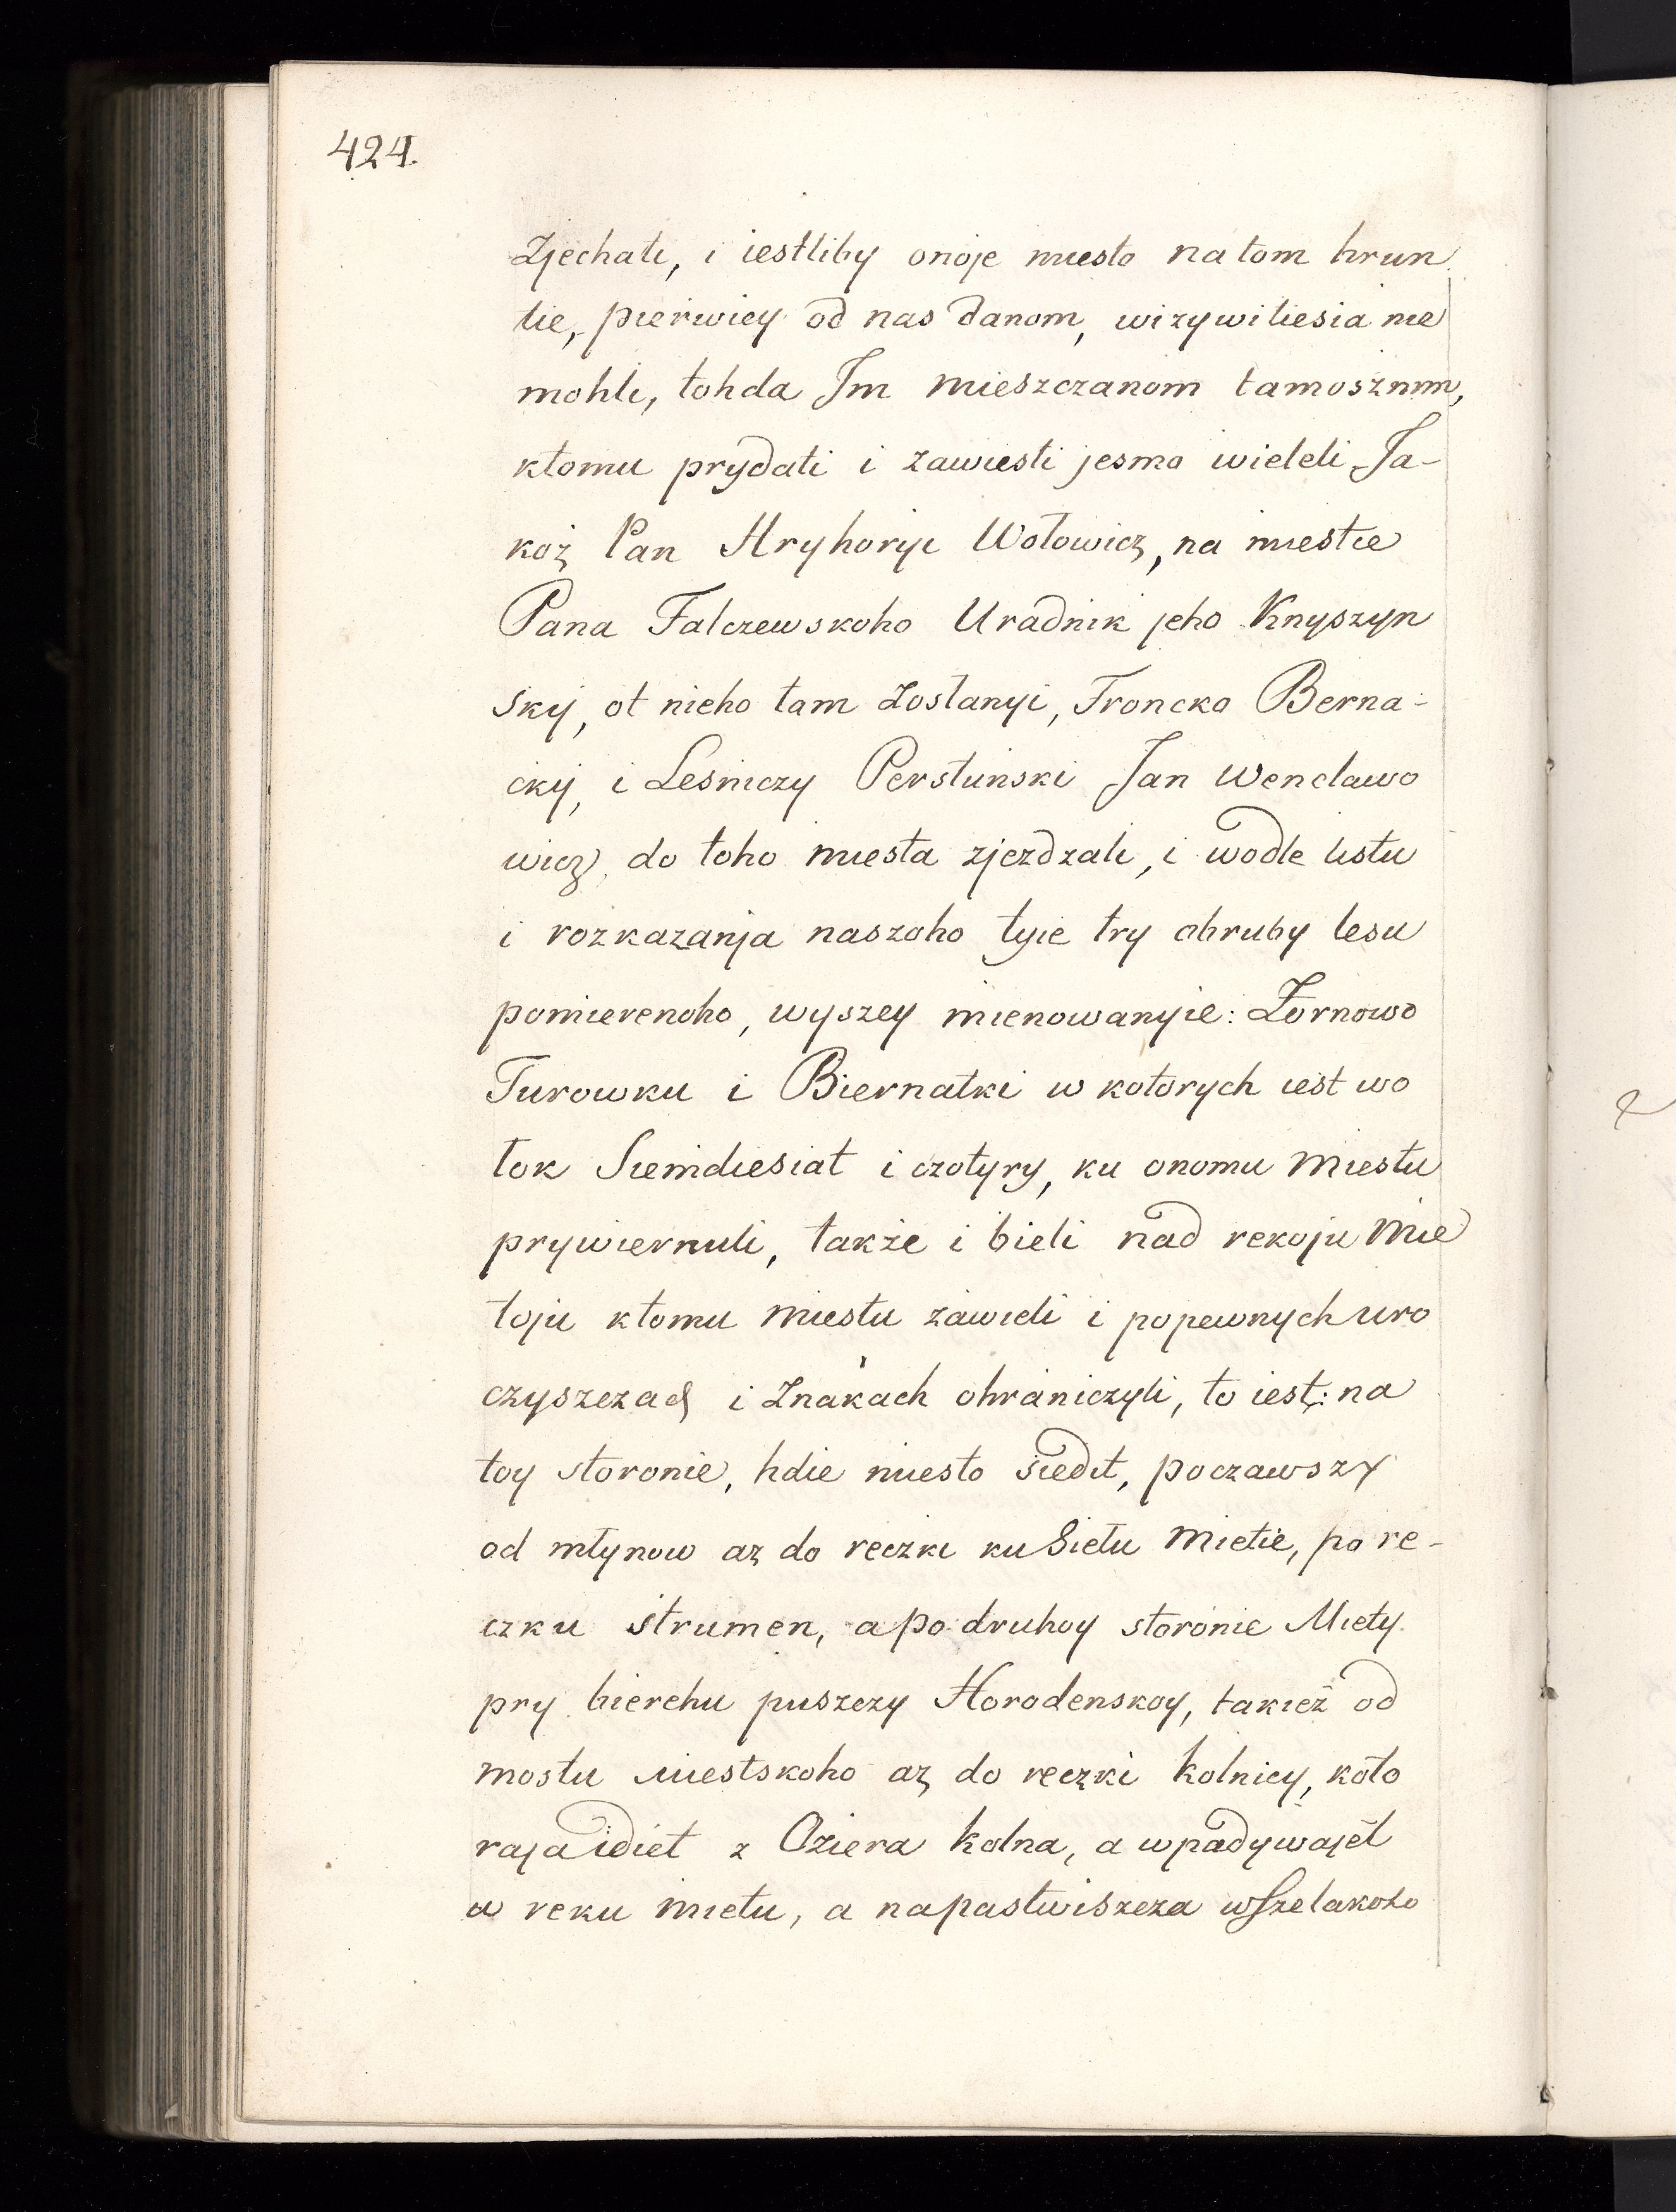 424.
Zjechati, i iestliby onoje miesto na tom hrun
tie, pierwiey od nas danom, wizywitiesia nie
mohli, tohda Jm mieszczanom tamosznim,
ktomu prydati i zawiesti jesmo wieleli Ja-
koż Pan Hryhoryi Wołowicz, na miestie
Pana Falczewskoho Uradnik jeho Knyszyn
skÿ, ot nieho tam Zosłanyi, Troncko Berna-
ckÿ, i Lesniczy Perstunski Jan Wencławo
wicz, do toho miesta zjezdzali, i wodle listu
i rozkazanja naszoho tyie try obruby lesu
pomierenoho, wyszey mienowanyie: Żornowo
Turowku i Biernatki w kotorych iest wo
łok Siemdiesiat i czotyry, ku onomu miestu
prywiernuli, także i bieli nad rekoju Mie
toju ktomu miestu zawieli i popewnych uro
czyszczach i Znakach ohraniczyli, to iest: na
toy storonie, hdie miesto siedit, poczawszy
od młynow aż do reczki ku Sietu Mietie, po re-
czku strumen, a po druhoy storonie Miety
pry bierehu puszczy Horodenskoy, takież od
mostu miestskoho aż do reczki Kolnicy, koto
raja idiet z Oziera Kolna, a wpadywajet
w reku Mietu, a na pastwiszcza wszelakoho